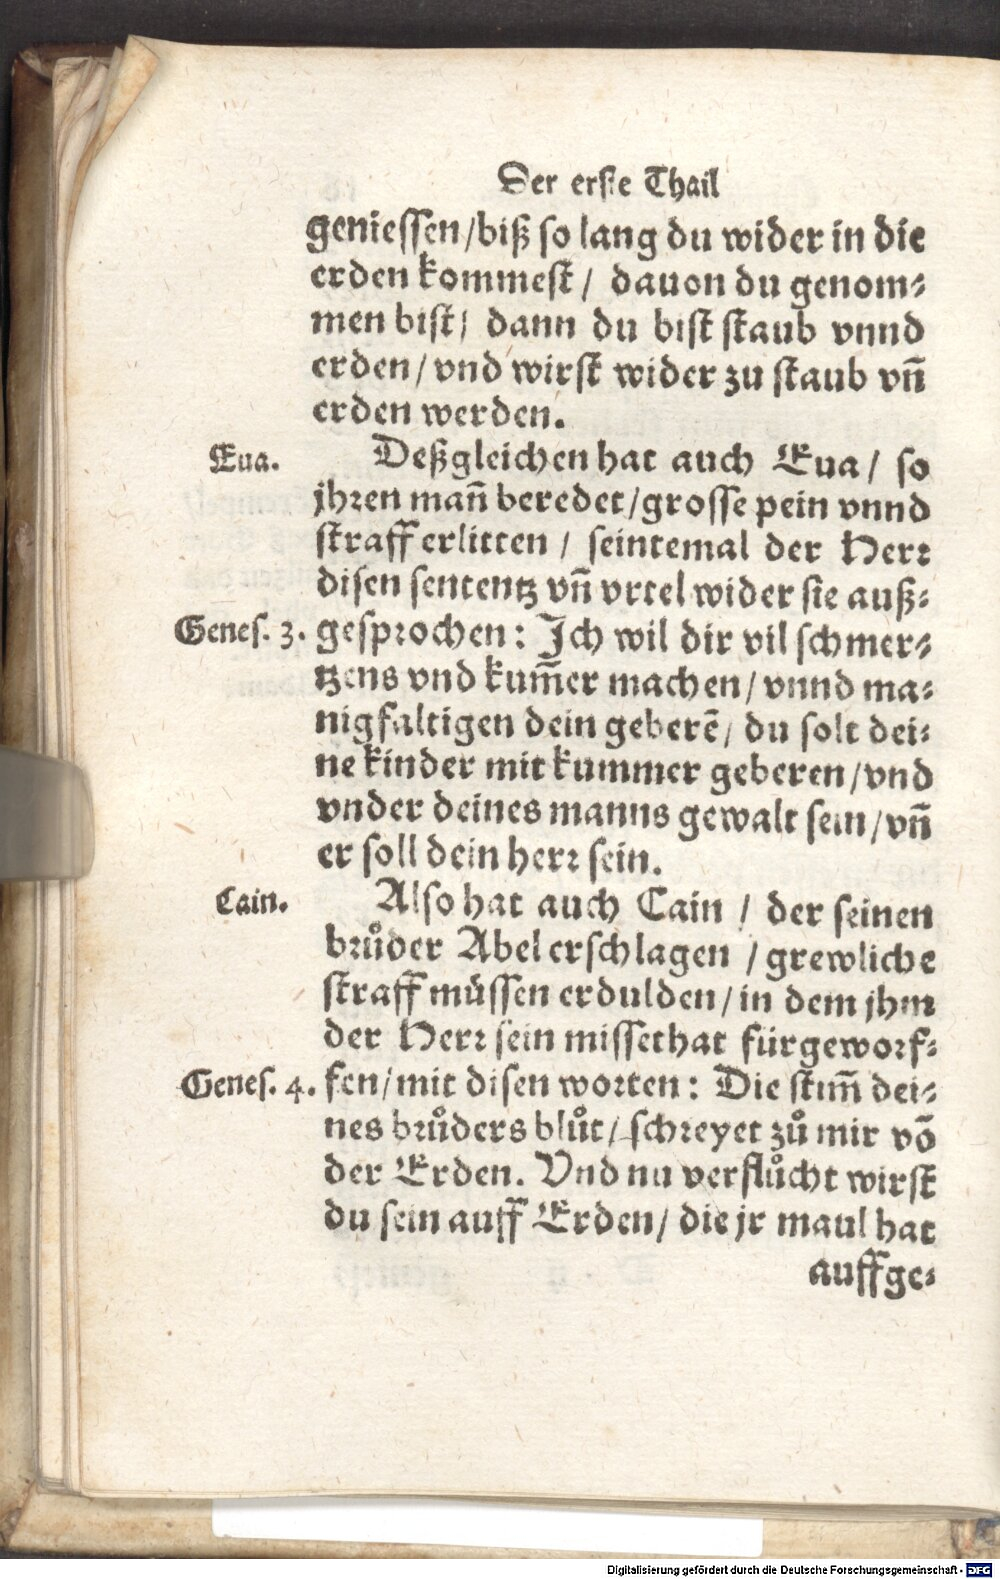 Der erste Thail
geniessen/biß so lang du wider in die
erden kommest/ dauon du genom-
men bist/ dann du bist staub vnnd
erden/vnd wirst wider zu staub vn̄
erden werden.
Eua.
Deßgleichen hat auch Eua/ so
jhren man̄ beredet/grosse pein vnnd
straff erlitten/ seintemal der Herr
disen sententz vn̄ vrtel wider sie auß-
Genes. 3.
gesprochen: Ich wil dir vil schmer-
tzens vnd kum̄er machen/vnnd ma-
nigfaltigen dein geberē/ du solt dei-
ne kinder mit kummer geberen/vnd
vnder deines manns gewalt sein/vn̄
er soll dein herr sein.
Cain.
Also hat auch Cain/ der seinen
brůder Abel erschlagen/grewliche
straff müssen erdulden/in dem jhm
der Herr sein missethat fürgeworf-
Genes. 4.
fen/mit disen worten: Die stim̄ dei-
nes brůders blůt/schreyet zů mir vō
der Erden. Vnd nu verflůcht wirst
du sein auff Erden/ die jr maul hat
auffge-
Digitalisierung gefördert durch die Deutsche Forschungsgemeinschaft - DFG